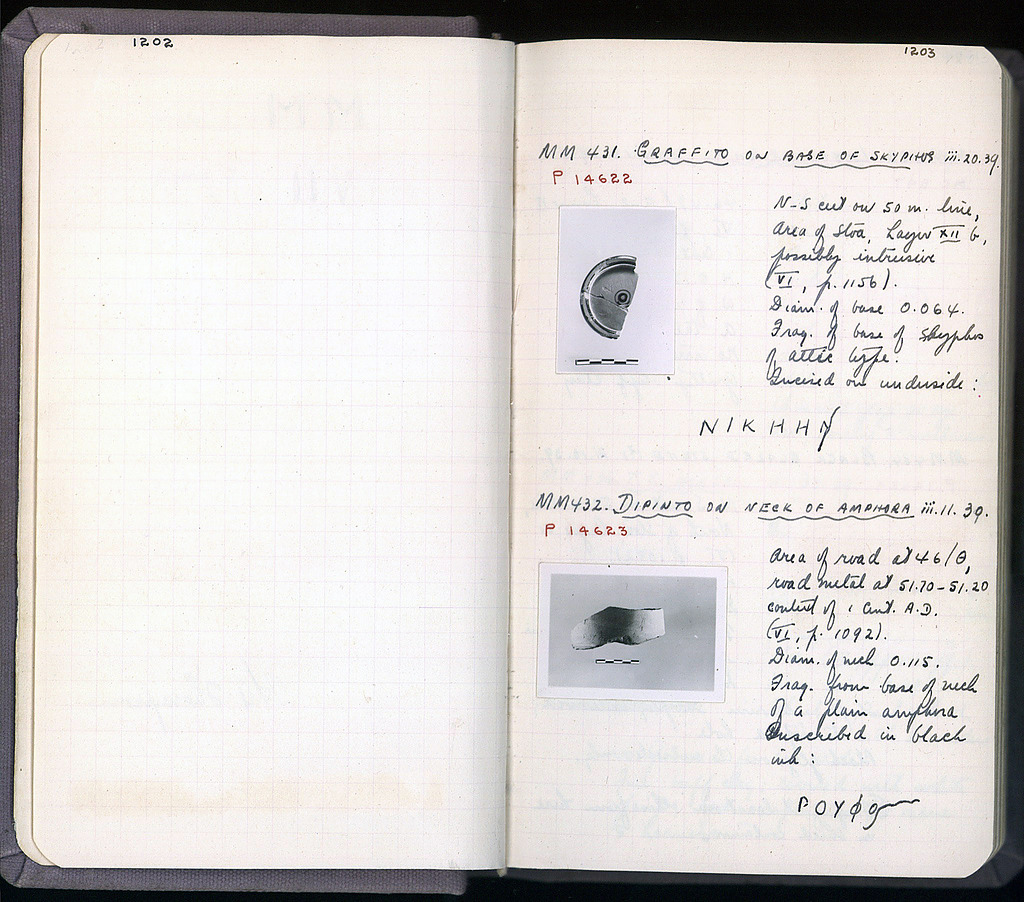 1202
1203
MM 431. GRAFFITO ON BASE OF SKYPHOS iii.20.39.
P 14622
N-S cut on 50 m. line,
Area of Stoa, Layer XII b,
possibly intrusive
(VI, p. 1156).
Diam. of base 0.064.
Frag. of base of skyphos
of attic type.
Incised on underside:
ΝΙΚΗΗΝ
MM432. DIPINTO ON NECK OF AMPHORA iii.11.39.
P 14623
Area of road at 46/Θ,
road metal at 51.70-51.20
context of 1 Cent. A.D.
(VI, p. 1092).
Diam. of neck 0.115.
Frag. from base of neck
of a plain amphora
Inscribed in black
ink:
ΡΟΥΦο